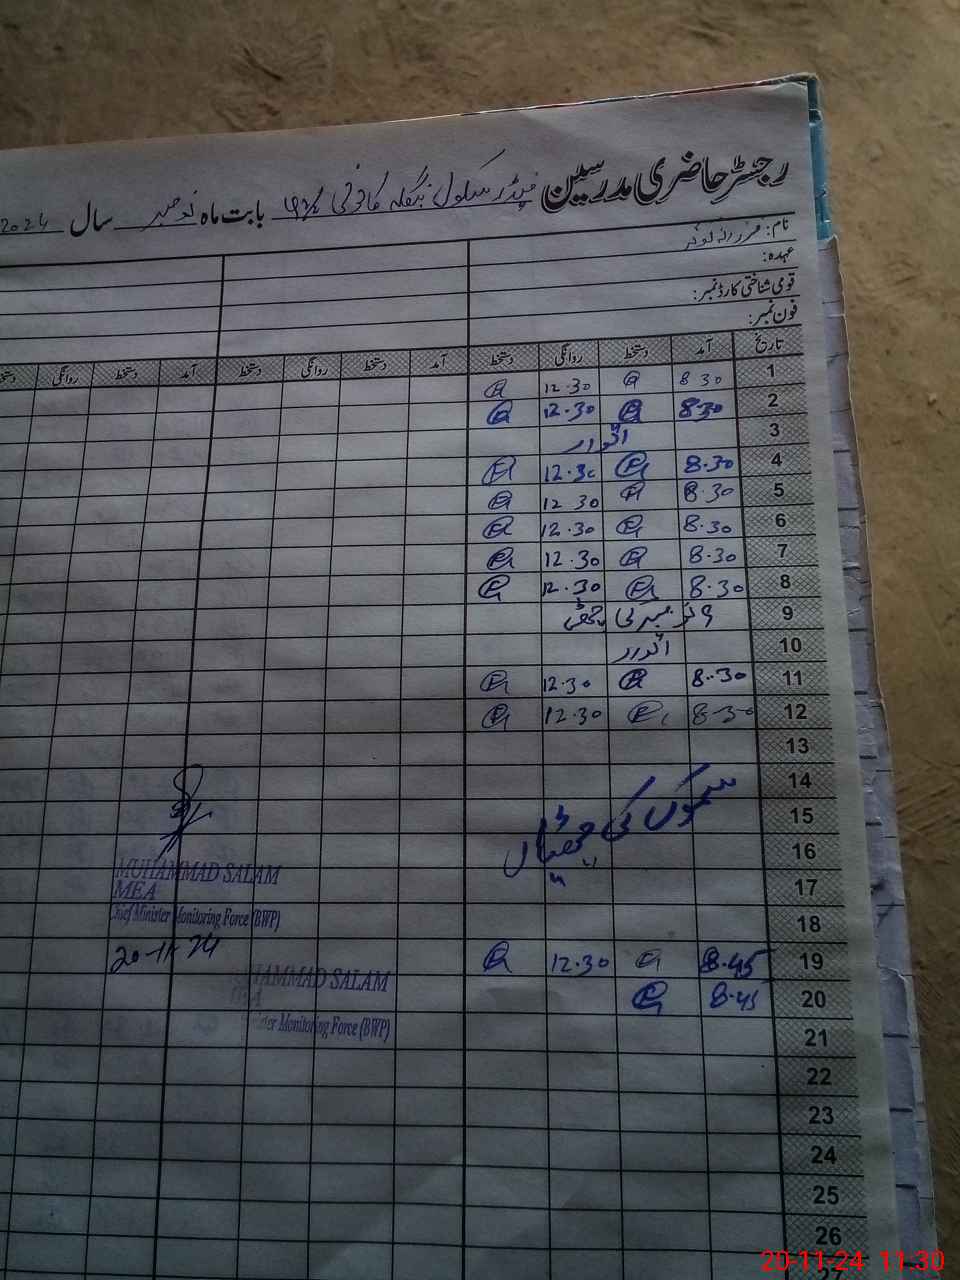 رجسٹر حاضری مدرسین فیڈر سکول بنگلہ بابت ماہ نومبر سال 2024
نام:
عہدہ:
قومی شناختی کارڈ نمبر:
فون نمبر:
تاریخ آمد دستخط روانگی دستخط آمد دستخط روانگی دستخط آمد دستخط روانگی
1 8 30 12.30
2 8.30 12.30
3 اتوار
4 8.30 12.30
5 8.30 12 30
6 8.30 12.30
7 8.30 12.30
8 8.30 12.30
9 9 نومبر کی چھٹی
10 اتوار
11 8.30 12.30
12 8.30 12.30
13
14
15 سموگ کی چھٹیاں
16
17
18
19 8.45 12.30
20 8.45
21
22
23
24
25
26
MUHAMMAD SALAM
MEA
Chief Minister Monitoring Force (BWP)
20-11-24
MUHAMMAD SALAM
MEA
Minister Monitoring Force (BWP)
20-11-24 11:30